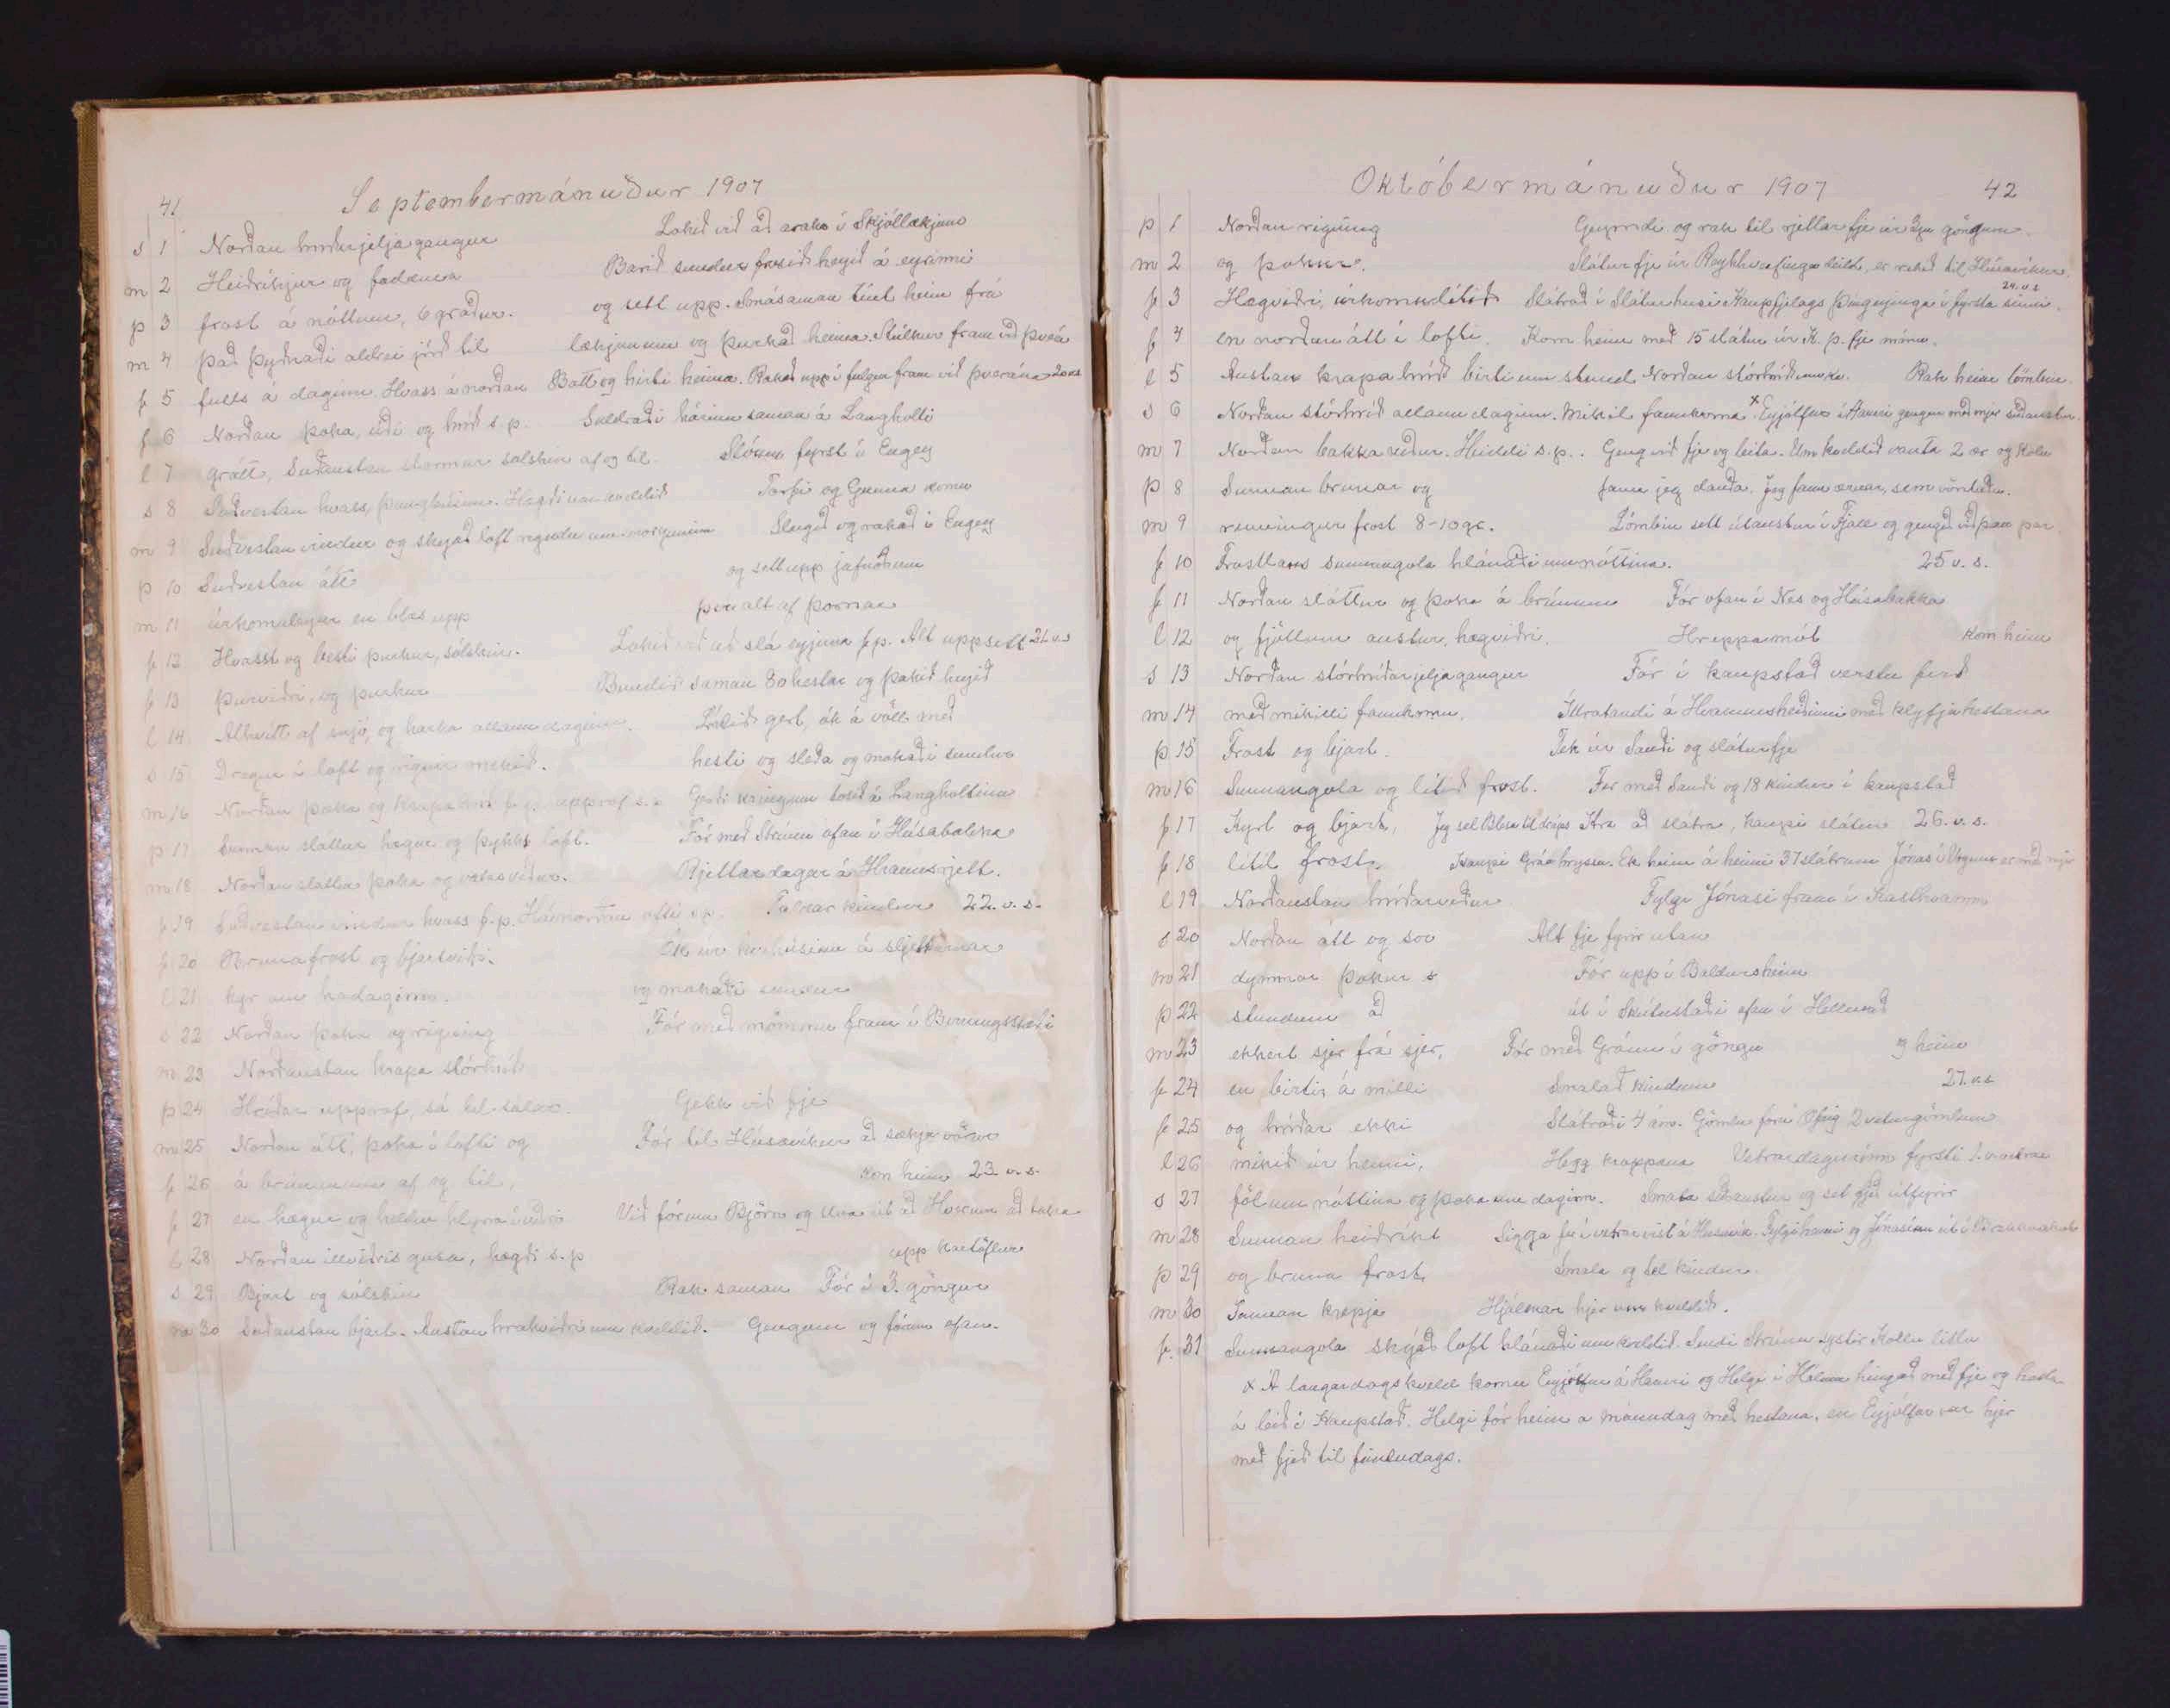 41
Septembermánuður 1907
s 1 Norðan hríðarjeljagangur Lokið við að raka í Skjóllækjum
m 2 Heiðríkjur og fadæma Barið sundur frosið heyið á eyrinni
þ 3 frost á nóttum, 6 gráður. og sett upp. Smásaman tínt heim frá
m 4 það þyðnaði aldrei jörð til lækjunum og þurkað heima. Stúlkur fram við þverá
f 5 fulls á daginn. Hvass á norðan Batt og hirti heima. Rakað upp í fulgu fram við þverána 20 v.s
f 6 Norðan þoka, úði og hríð s.p. Saldraði háinu saman á Langholti
l 7 grátt, Suðaustan stormur sólskin af og til. Slóum fyrst í Engey
s 8 Suðvestan hvass, þungbúinn. Hægði um kveldið Torfi og Gunna komu
m 9 Suðvestan vindur og skyjað loft rigndi um morguninn Slegið og rakað í Engey
þ 10 Suðvestan átt og sett upp jafnóðum
m 11 úrkomulegur en blæs upp því alt af þornar
f 12 Hvasst og besti þurkur, sólskin. Lokið við að slá eyjuna f.p. Alt uppsett 21. v.s
f 13 þurviðri, og þurkur Bundið saman 80 hestar og þakið heyið
l 14 Alhvítt af snjó, og harka allann daginn. Lítið gert, ók á völl með
s 15 Dregur í loft og rignir mikið. hesti og sleða og mokaði sundur
m 16 Norðan þoka og krapahríð f.p. uppraf s.p. Gerði kringum tóftið á Langholtinu
þ 17 Sunnan sláttur hægur og þykkt loft. Fór með Stránu ofan í Húsabakka
m 18 Norðan slattur þoka og vætuveður. Rjettardagar á Hraunsrjett.
f 19 Suðvestan vindur hvass f.p. Hánorðan eftir s.p. Taldar kindur 22. v. s.
f 20 Brunafrost og bjartviðri. Ók úr hrhúsinu á sljetturnar
l 21 kyr um hádaginn. og mokaði sundur
s 22 Norðan þoka og rigning Fór með mömmu fram í Brenningsstaði
m 23 Norðaustan krapa stórhríð
þ 24 Hríðar uppraf, sá til sólar. Gekk við fje
m 25 Norðan átt, þoka í lofti og Fór til Húsavíkur að sækja vörur
f 26 á brúnunum af og til, kom heim 23 v. s.
f 27 en hægur og heldur hlyrra í veðri Við fórum Björn og Una út að Hverum að taka
l 28 Norðan illviðris gusa, hægði s.p upp kartöflur
s 29 Bjart og sólskin Rak saman Fór í 3. göngur
m 30 Suðaustan bjart. Austan hrakviðri um kveldið. Gengum og fórum ofan.
Októbermánuður 1907
42
þ 1 Norðan rigning Gengum og rak til rjettar fje úr göngum.
m 2 og þokur. Sláturfje úr Reykhverfinga deild, er rekið til Húsavíkur.
f 3 Hægviðri, úrkomulítið Slátrað í Sláturhúsi Kaupfjelags þingeyinga í fyrsta sinni. 24. v.s
f 4 en norðan átt í lofti. Kom heim með 15 slátur úr K. þ. fje mínu.
l 5 Austan krapahríð birti um stund Norðan stórhríðarveður. Rak heim lömbin.
s 6 Norðan stórhríð allann daginn. Mikil fannkoma x. Eyjólfur í Haucri gengur með mjer suðaustur.
m 7 Norðan bakkaveður. Heiddi s.p. Geng við fje og leita. Um kveldið vanta 2 ær og Kolu
þ 8 Sunnan brunar og fann jeg dauða. Jeg fann ærnar, sem vöntuðu.
m 9 renningur frost 8-10 gr. Lömbin sett útaustur í Fjall og gengið við þau þar
f 10 Frostlaus sunnangola hlánaði um nóttina. 25 v. s.
f 11 Norðan sláttur og þoka á brúnum Fór ofan í Nes og Húsabakka
l 12 og fjöllum austur, hægviðri. Hreppamót kom heim
s 13 Norðan stórhríðarjeljagangur Fór í kaupstað verstu ferð
m 14 með mikilli fannkomu. Illratandi á Hvammsheiðinni með klyfjahestana
þ 15 Frost og bjart. Tek úr Sauði og sláturfje
m 16 Sunnangola og lítið frost. Fer með Sauði og 18 kindur í kaupstað
f 17 Kyrt og bjart, Jeg sel Blesa til drápr Kra að slátra, kaupi slátur 26. v. s.
f 18 lítil frost. Kaupi Gráa hryssu. Ek heim á henni 37 slátrum Jónas í Vogum er með mjer
l 19 Norðaustan hríðarveður Fylgi Jónasi fram í Kasthvamm
s 20 Norðan átt og svo Alt fje fyrir utan
m 21 dymmar þokur Fór upp í Baldursheim
þ 22 stundum að út í Skútustaði ofan í Helluvað
m 23 ekkert sjer frá sjer, Fór með Gránu í göngu og heim
f 24 en birtir á milli Smalað kindum 27. v.s
f 25 og hríðar ekki Slátraði 4 ám. Gömlu fóru Ofeig 2 veturgömlum
l 26 mikið úr henni. Hegg krappana Vetrardagurinn fyrsti 1. v. vetrar
s 27 föl um nóttina og þoka um daginn. Smala suðaustur og set fjeð útfyrir
m 28 Sunnan heiðríkt Sigga fer í vetrarvist á Húsavík. Fylgi henni og Jónasínu út í
þ 29 og bruna frost. Smala og tel kindur.
m 30 Sunnan krepja Hjálmar hjer um kveldið.
f. 31 Sunnangola skyjað loft hlánaði um kveldið. Sendi Stránu systir Kollu litlu
x Á laugardagskveld komu Eyjólfur á Haucri og Helgi í Holum hingað með fje og hesta
á leið í Kaupstað. Helgi fór heim á mánudag með hestana, en Eyjólfur var hjer
með fjeð til fimtudags.